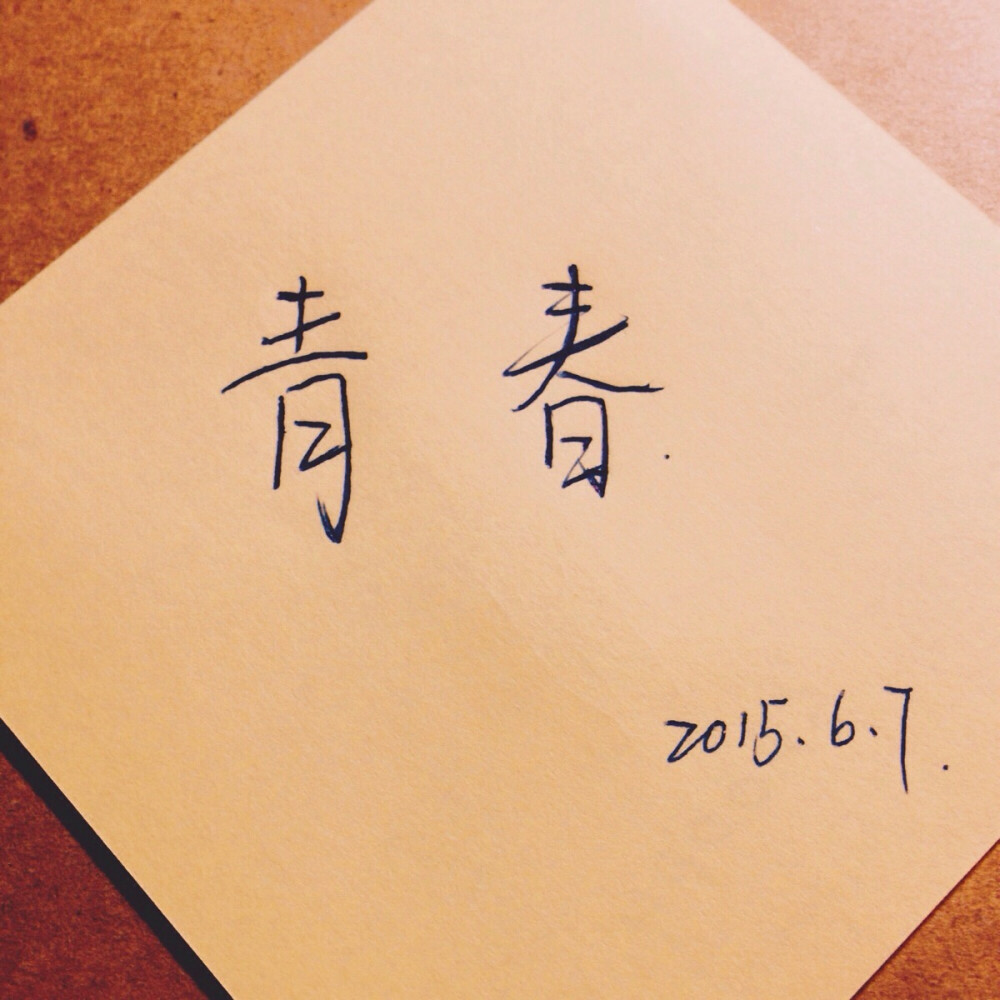 青春.
2015.6.7.